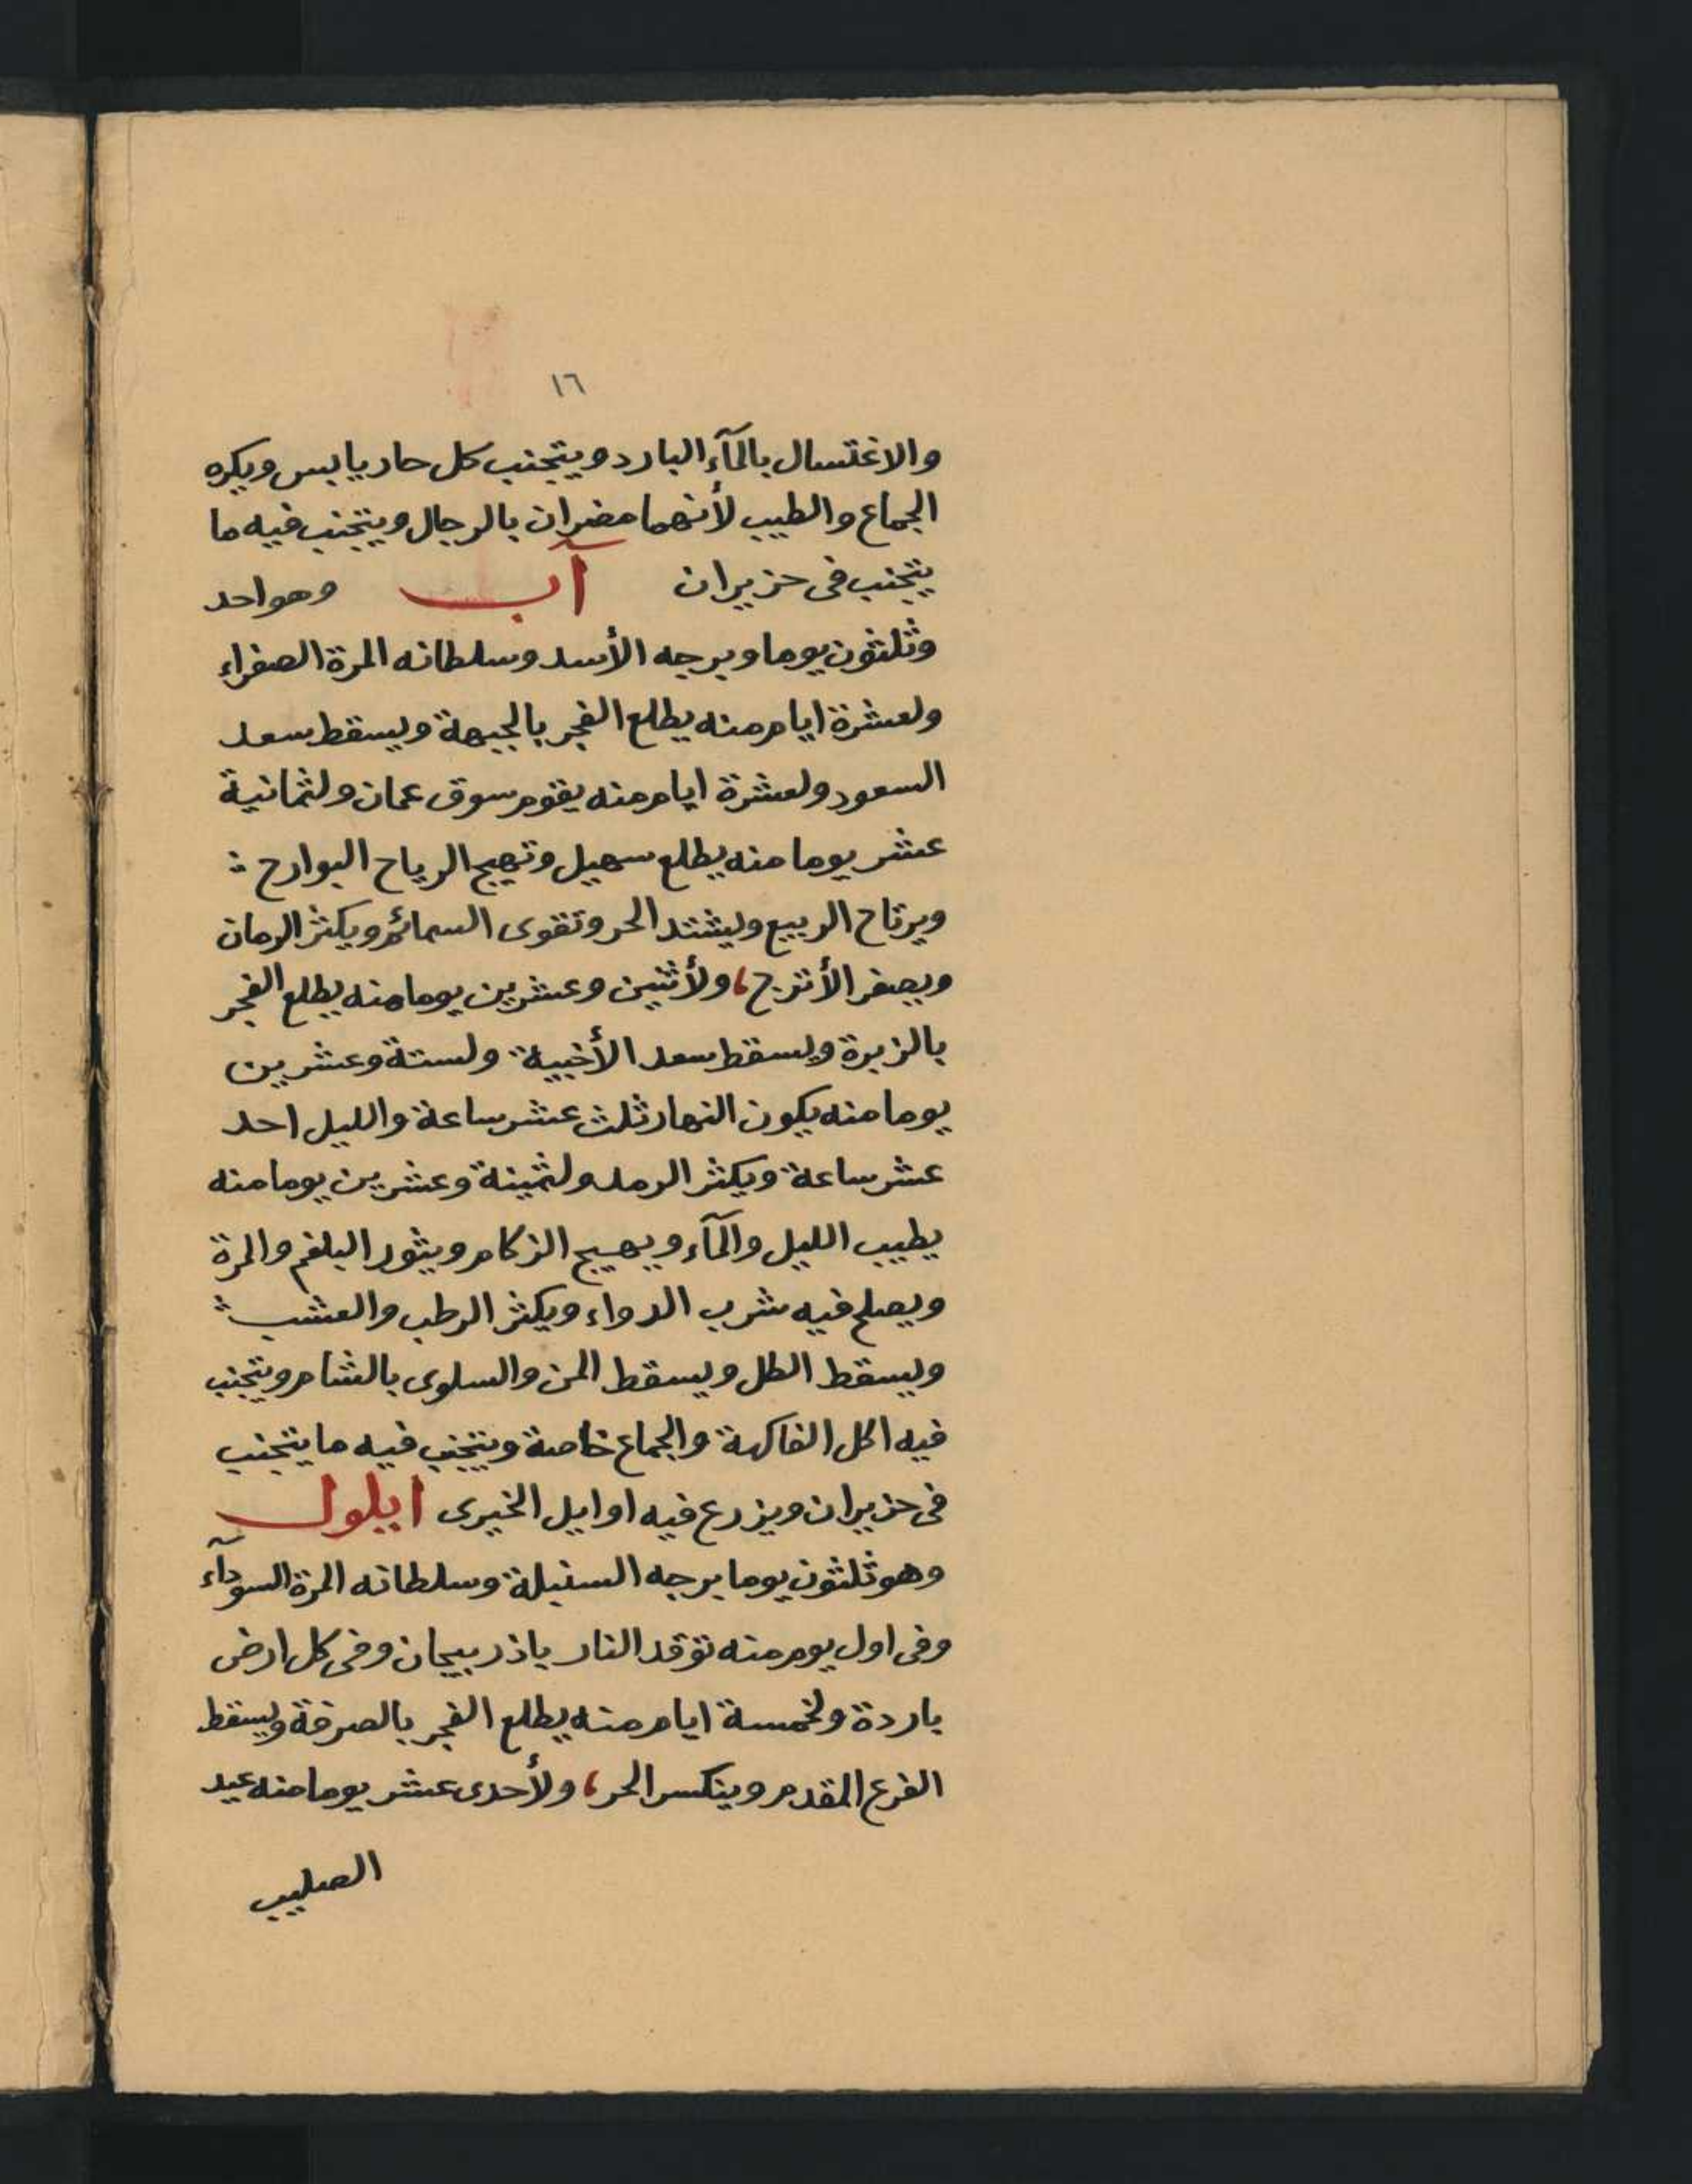 ١٦
والاغتسال بالمآء البارد ويتجنب كل حار يابس ويكره
الجماع والطيب لأنهما مضران بالرجال ويتجنب فيه ما
يتجنب فى حزيران آب وهو احد
وثلثون يوما وبرجه الأسد وسلطانه المرة الصفراء
ولعشرة ايام منه يطلع الفجر بالجبهة ويسقط سعد
السعود ولعشرة ايام منه يقوم سوق عمان ولثمانية
عشر يوما منه يطلع سهيل وتهيج الرياح البوارح
ويرتاح الربيع ويشتد الحر وتقوى السمائم ويكثر الرمان
ويصفر الأترج، ولأثنين وعشرين يوما منه يطلع الفجر
بالزبرة ويسقط سعد الأخبية ولستة وعشرين
يوما منه يكون النهار ثلث عشر ساعة والليل احد
عشر ساعة ويكثر الرمد ولثمينة وعشرين يوما منه
يطيب الليل والمآء ويهيج الزكام ويثور البلغم والمرة
ويصلح فيه شرب الدواء ويكثر الرطب والعشب
ويسقط الطل ويسقط المن والسلوى بالشام ويتجنب
فيه اكل الفاكهة والجماع خاصة ويتجنب فيه ما يتجنب
فى حزيران ويزرع فيه اوايل الخيرى ايلول
وهو ثلثون يوما برجه السنبلة وسلطانه المرة السودآء
وفى اول يوم منه توقد النار باذربيجان وفى كل ارض
باردة ولخمسة ايام منه يطلع الفجر بالصرفة ويسقط
الفرع المقدم وينكسر الحر، ولأحدى عشر يوما منه عيد
الصليب